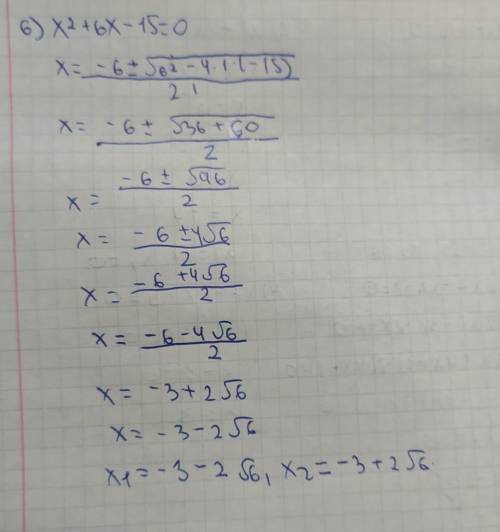 б) x²+6x-15=0
x= -6±√6²-4·1·(-15) / 2·1
x= -6±√36+60 / 2
x= -6±√96 / 2
x= -6±4√6 / 2
x= -6+4√6 / 2
x= -6-4√6 / 2
x= -3+2√6
x= -3-2√6
x₁=-3-2√6, x₂=-3+2√6.